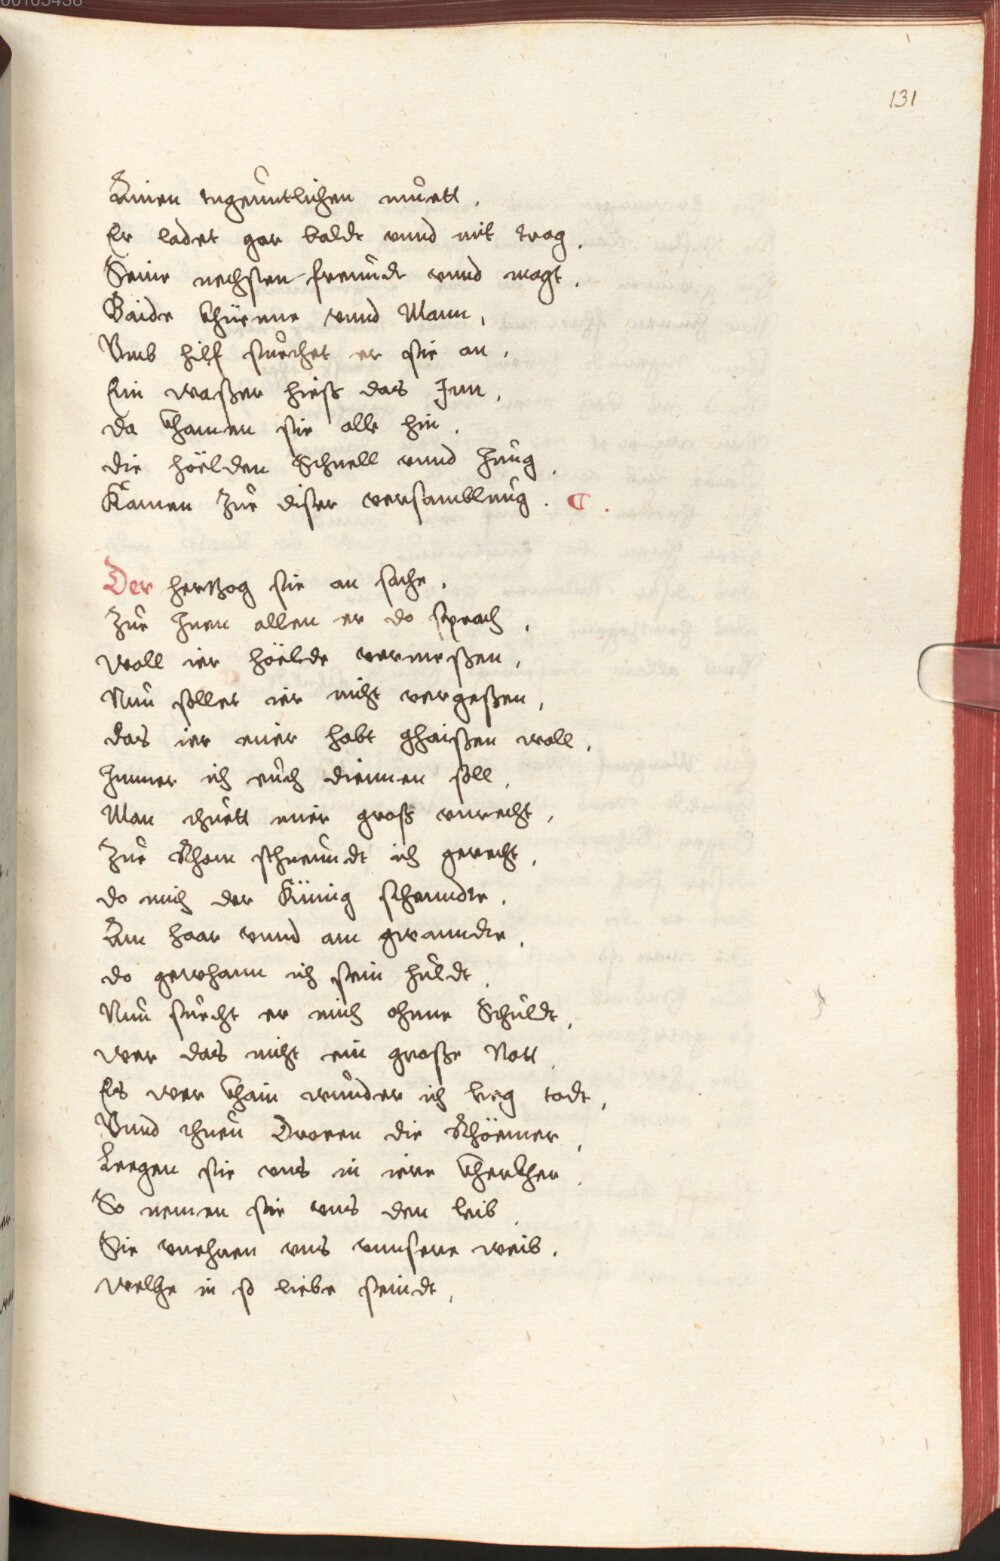 131
Einen tugenntlichen muett.
Er ladet gar baldt vnnd nit trog,
Seine nechsten freundt vnnd magt.
Baide khüenne vnnd Mann,
Vmb hilf suechet er sie an,
Ein waßer hieß das Inn,
da khamen sie alle hin.
die höelden Schnell vnnd Jung,
Kamen Zue diser versamblung. ¶.
Der hertzog sie an sache,
Zue Inen allen er do sprach,
woll ier höelde vermeßen,
Nun sollet ier nicht vergeßen,
das ier mier habt ghaißen woll,
Immer ich euch dienen soll,
Man thuett mier groß vnrecht,
Zue Rhom schneundt ich gerecht,
do mich der Künig schanndte,
Am haar vnnd am gwanndte,
do gewhann ich sein huldt,
Nun suecht er mich ohnne Schuldt,
wer das nicht ein große Nott,
Es wer khain wunder ich lieg todt,
Vnnd thuen Droen die Rhöemer,
Legen sie vns in iere kherkher,
So nemen sie vns den leib
Sie vnehren vns vnnsere weib.
welche in so liebe seindt,